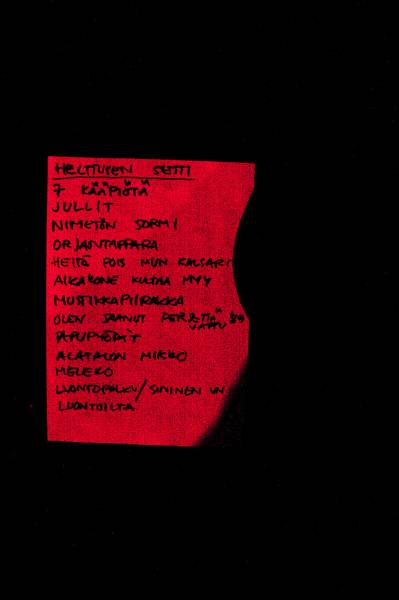 HELTTUSEN SETTI
7 KÄÄPIÖTÄ
JULLIT
NIMETÖN SORMI
ORJANTAPPARA
HEITÄ POIS MUN KALSARI
AIKAKONE KULTAA MYY
MUSTIKKAPIIRAKKA
OLEN SAANUT VAPPU 89
PAPUPYÖRÄT
ALATALON MIKKO
MELEKO
LUONTOPOLKU/SININEN UN
LUONTOILTA